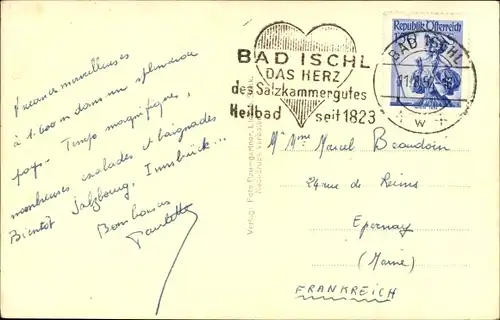 Vacances merveilleuses
à 1.600m dans un splendide
pays - Temps magnifique,
nombreuses balades et baignades
Bientôt Salzbourg, Innsbruck...
Bons baisers
Paulette
Verlag: Foto Baumgartner,
BAD ISCHL
DAS HERZ
des Salzkammergutes
Heilbad seit 1823
Republik Österreich
BAD ISCHL
W
M. Mme Marcel Beaudoin
24 rue de Reims
Epernay
(Marne)
FRANKREICH